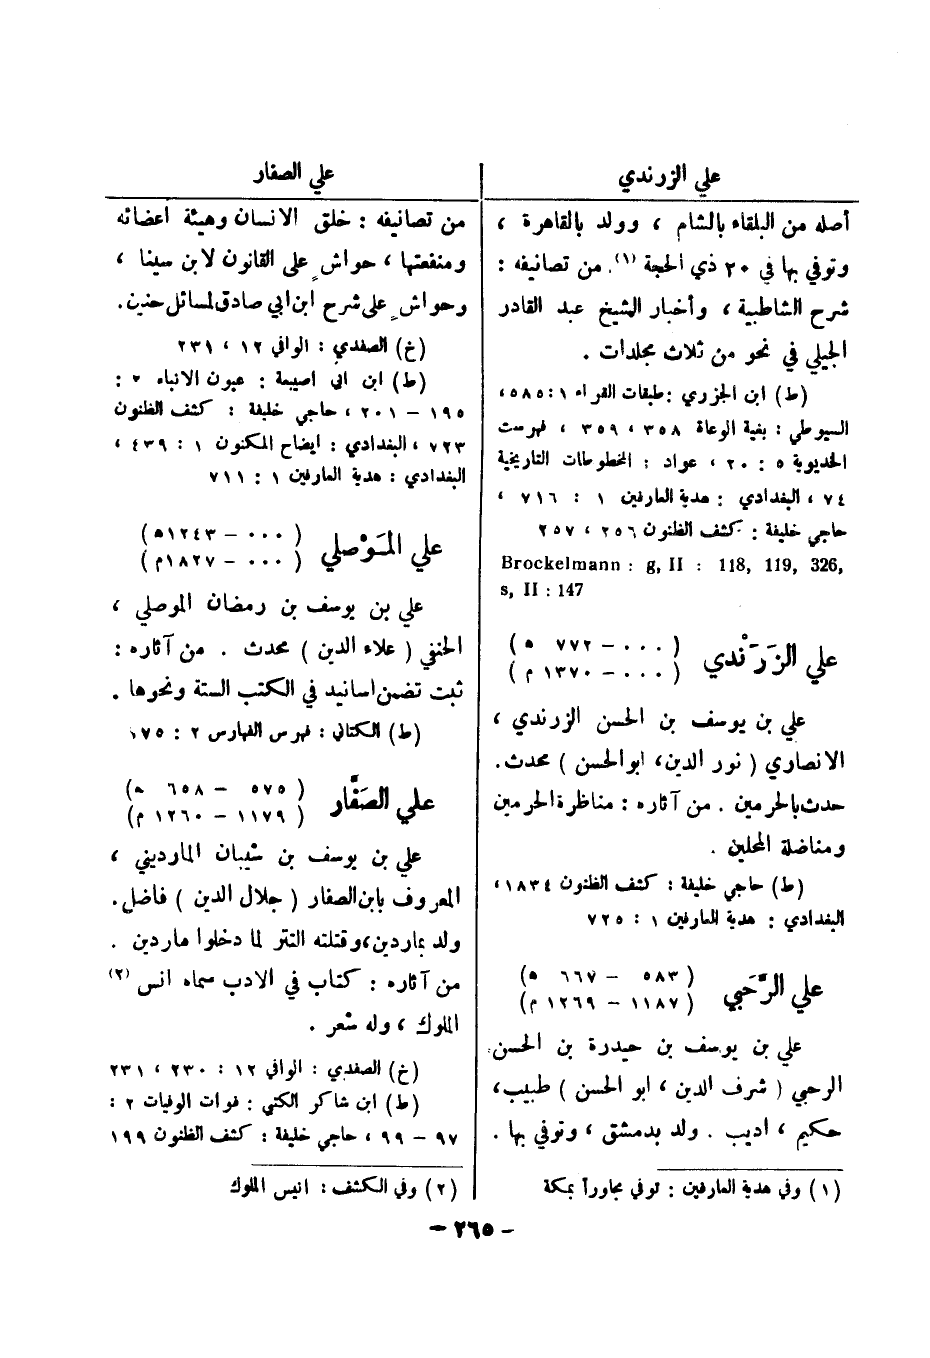 علي الزرندي
أصله من البلقاء بالشام ، وولد بالقاهرة ،
وتوفي بها في ٢٠ ذي الحجة (١). من تصانيفه :
شرح الشاطبية ، وأخبار الشيخ عبد القادر
الجيلي في نحو من ثلاث مجلدات .
(ط) ابن الجزري : طبقات القراء ١ : ٥٨٥ ،
السيوطي : بغية الوعاة ٣٥٨ ، ٣٥٩ ، فهرست
الخديوية ٥ : ٢٠ ، عواد : المخطوطات التاريخية
٧٤ ، البغدادي : هدية العارفين ١ : ٧١٦ ،
حاجي خليفة : كشف الظنون ٢٥٦ ، ٢٥٧
Brockelmann : g, II : 118, 119, 326,
s, II : 147
علي الزَرَنْدي (٠٠٠ – ٧٧٢ ه)
(٠٠٠ – ١٣٧٠ م)
علي بن يوسف بن الحسن الزرندي ،
الانصاري ( نور الدين ، ابو الحسن ) محدث .
حدث بالحرمين . من آثاره : مناظرة الحرمين
ومناضلة المحلين .
(ط) حاجي خليفة : كشف الظنون ١٨٣٤ ،
البغدادي : هدية العارفين ١ : ٧٢٥
علي الرَّحَبي (٥٨٣ – ٦٦٧ ه)
(١١٨٧ – ١٢٦٩ م)
علي بن يوسف بن حيدرة بن الحسن
الرحبي ( شرف الدين ، ابو الحسن ) طبيب ،
حكيم ، اديب . ولد بدمشق ، وتوفي بها .
(١) وفي هدية العارفين : توفي مجاوراً بمكة
علي الصفار
من تصانيفه : خلق الانسان وهيئة أعضائه
ومنفعتها ، حواشٍ على القانون لابن سينا ،
وحواشٍ على شرح ابن ابي صادق لمسائل حنين .
(خ) الصفدي : الوافي ١٢ ، ٢٣١
(ط) ابن ابي اصيبعة : عيون الانباء ٢ :
١٩٥ – ٢٠١ ، حاجي خليفة : كشف الظنون
٧٢٣ ، البغدادي : ايضاح المكنون ١ : ٤٣٩ ،
البغدادي : هدية العارفين ١ : ٧١١
علي المَوْصلي (٠٠٠ – ١٢٤٣ه)
(٠٠٠ – ١٨٢٧م)
علي بن يوسف بن رمضان الموصلي ،
الحنفي ( علاء الدين ) محدث . من آثاره :
ثبت تضمن اسانيد في الكتب الستة ونحوها .
(ط) الكتاني : فهرس الفهارس ٢ : ١٧٥
علي الصَفَّار (٥٧٥ – ٦٥٨ ه)
(١١٧٩ – ١٢٦٠ م)
علي بن يوسف بن شيبان المارديني ،
المعروف بابن الصفار ( جلال الدين ) فاضل .
ولد بماردين ، وقتلته التتر لما دخلوا ماردين .
من آثاره : كتاب في الادب سماه انس (٢)
الملوك ، وله شعر .
(خ) الصفدي : الوافي ١٢ : ٢٣٠ ، ٢٣١
(ط) ابن شاكر الكتبي : فوات الوفيات ٢ :
٩٧ – ٩٩ ، حاجي خليفة : كشف الظنون ١٩٩
(٢) وفي الكشف : انيس الملوك
– ٢٦٥ –